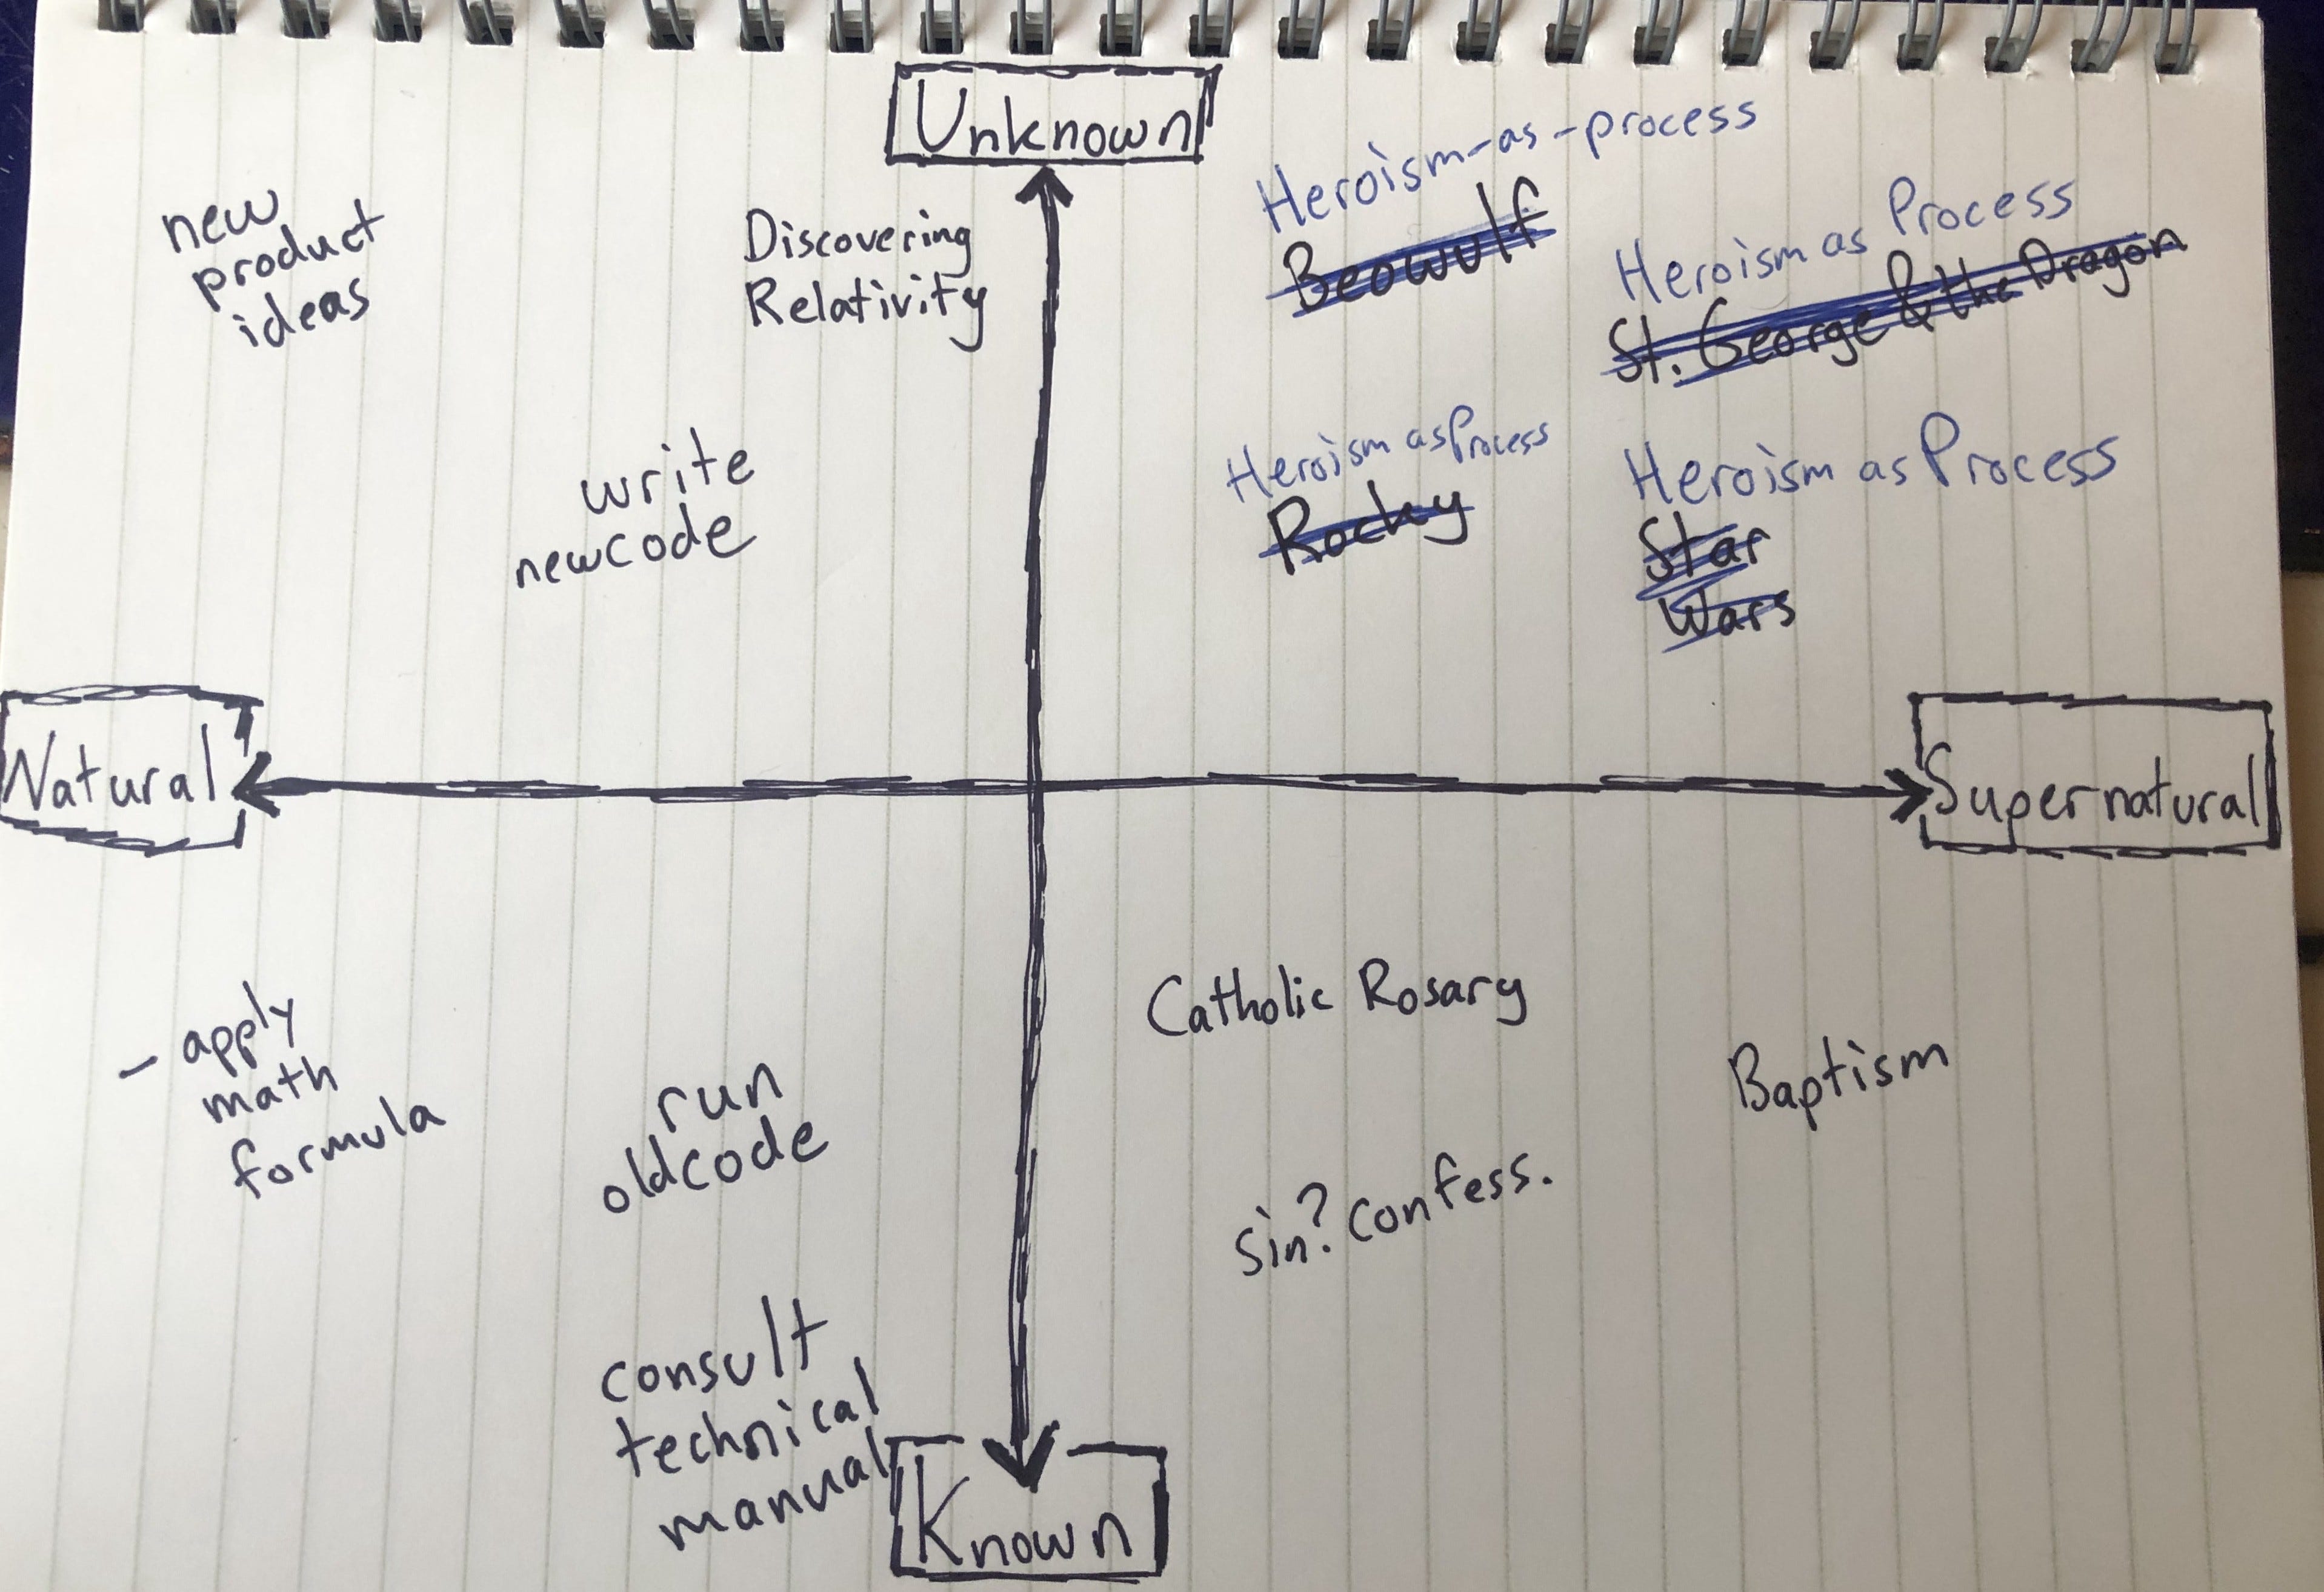 Unknown
new
product
ideas
Discovering
Relativity
write
newcode
Heroism-as-process
Beowulf
Heroism as Process
St. George & the Dragon
Heroism as Process
Rocky
Heroism as Process
Star
Wars
Natural
Supernatural
- apply
math
formula
run
oldcode
consult
technical
manual
Catholic Rosary
Baptism
sin? confess.
Known